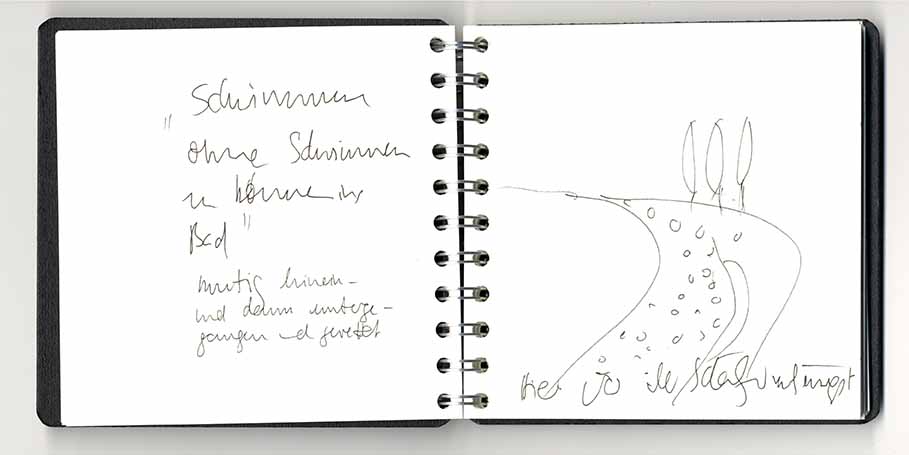 Schwimmen
" ohne Schwimmen
zu können im
Bad "
mutig hinein-
und dann unterge-
gangen und gerettet